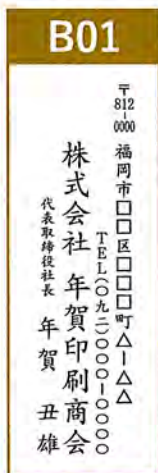 B01
〒812-0000
福岡市□□区□□□町△-△△
TEL(〇九二)〇〇〇-〇〇〇〇
株式会社 年賀印刷商会
代表取締役社長 年賀 丑雄